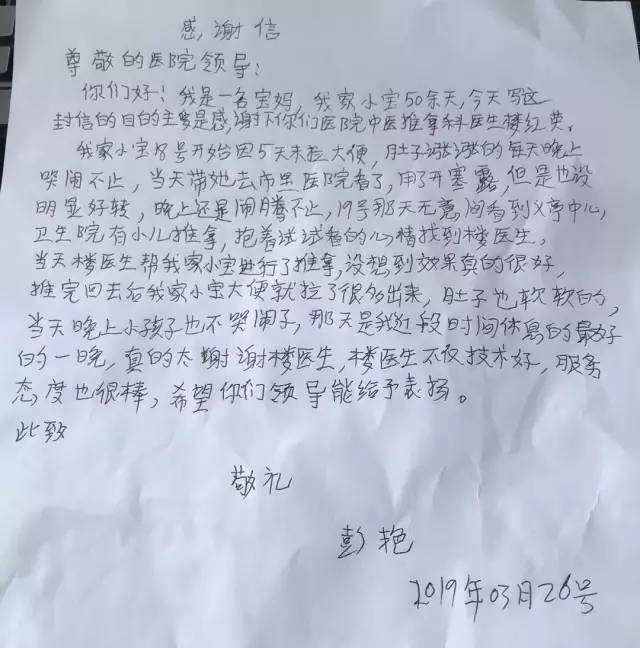 感谢信
尊敬的医院领导:
你们好!我是一名宝妈,我家小宝50余天,今天写这
封信的目的主要是感谢下你们医院中医推拿科医生楼红英。
我家小宝8号开始因5天未拉大便,肚子涨涨的每天晚上
哭闹不止,当天带她去市里医院看了,用了开塞露,但是也没
明显好转,晚上还是闹腾不止,19号那天无意间看到义亭中心
卫生院有小儿推拿,抱着试试看的心情找到楼医生,
当天楼医生帮我家小宝进行了推拿,没想到效果真的很好,
推完回去后我家小宝大便就拉了很多出来,肚子也软软的,
当天晚上小孩子也不哭闹了,那天是我近段时间休息的最好
的一晚,真的太谢谢楼医生,楼医生不仅技术好,服务
态度也很棒,希望你们领导能给予表扬。
此致
敬礼
彭艳
2019年03月26号